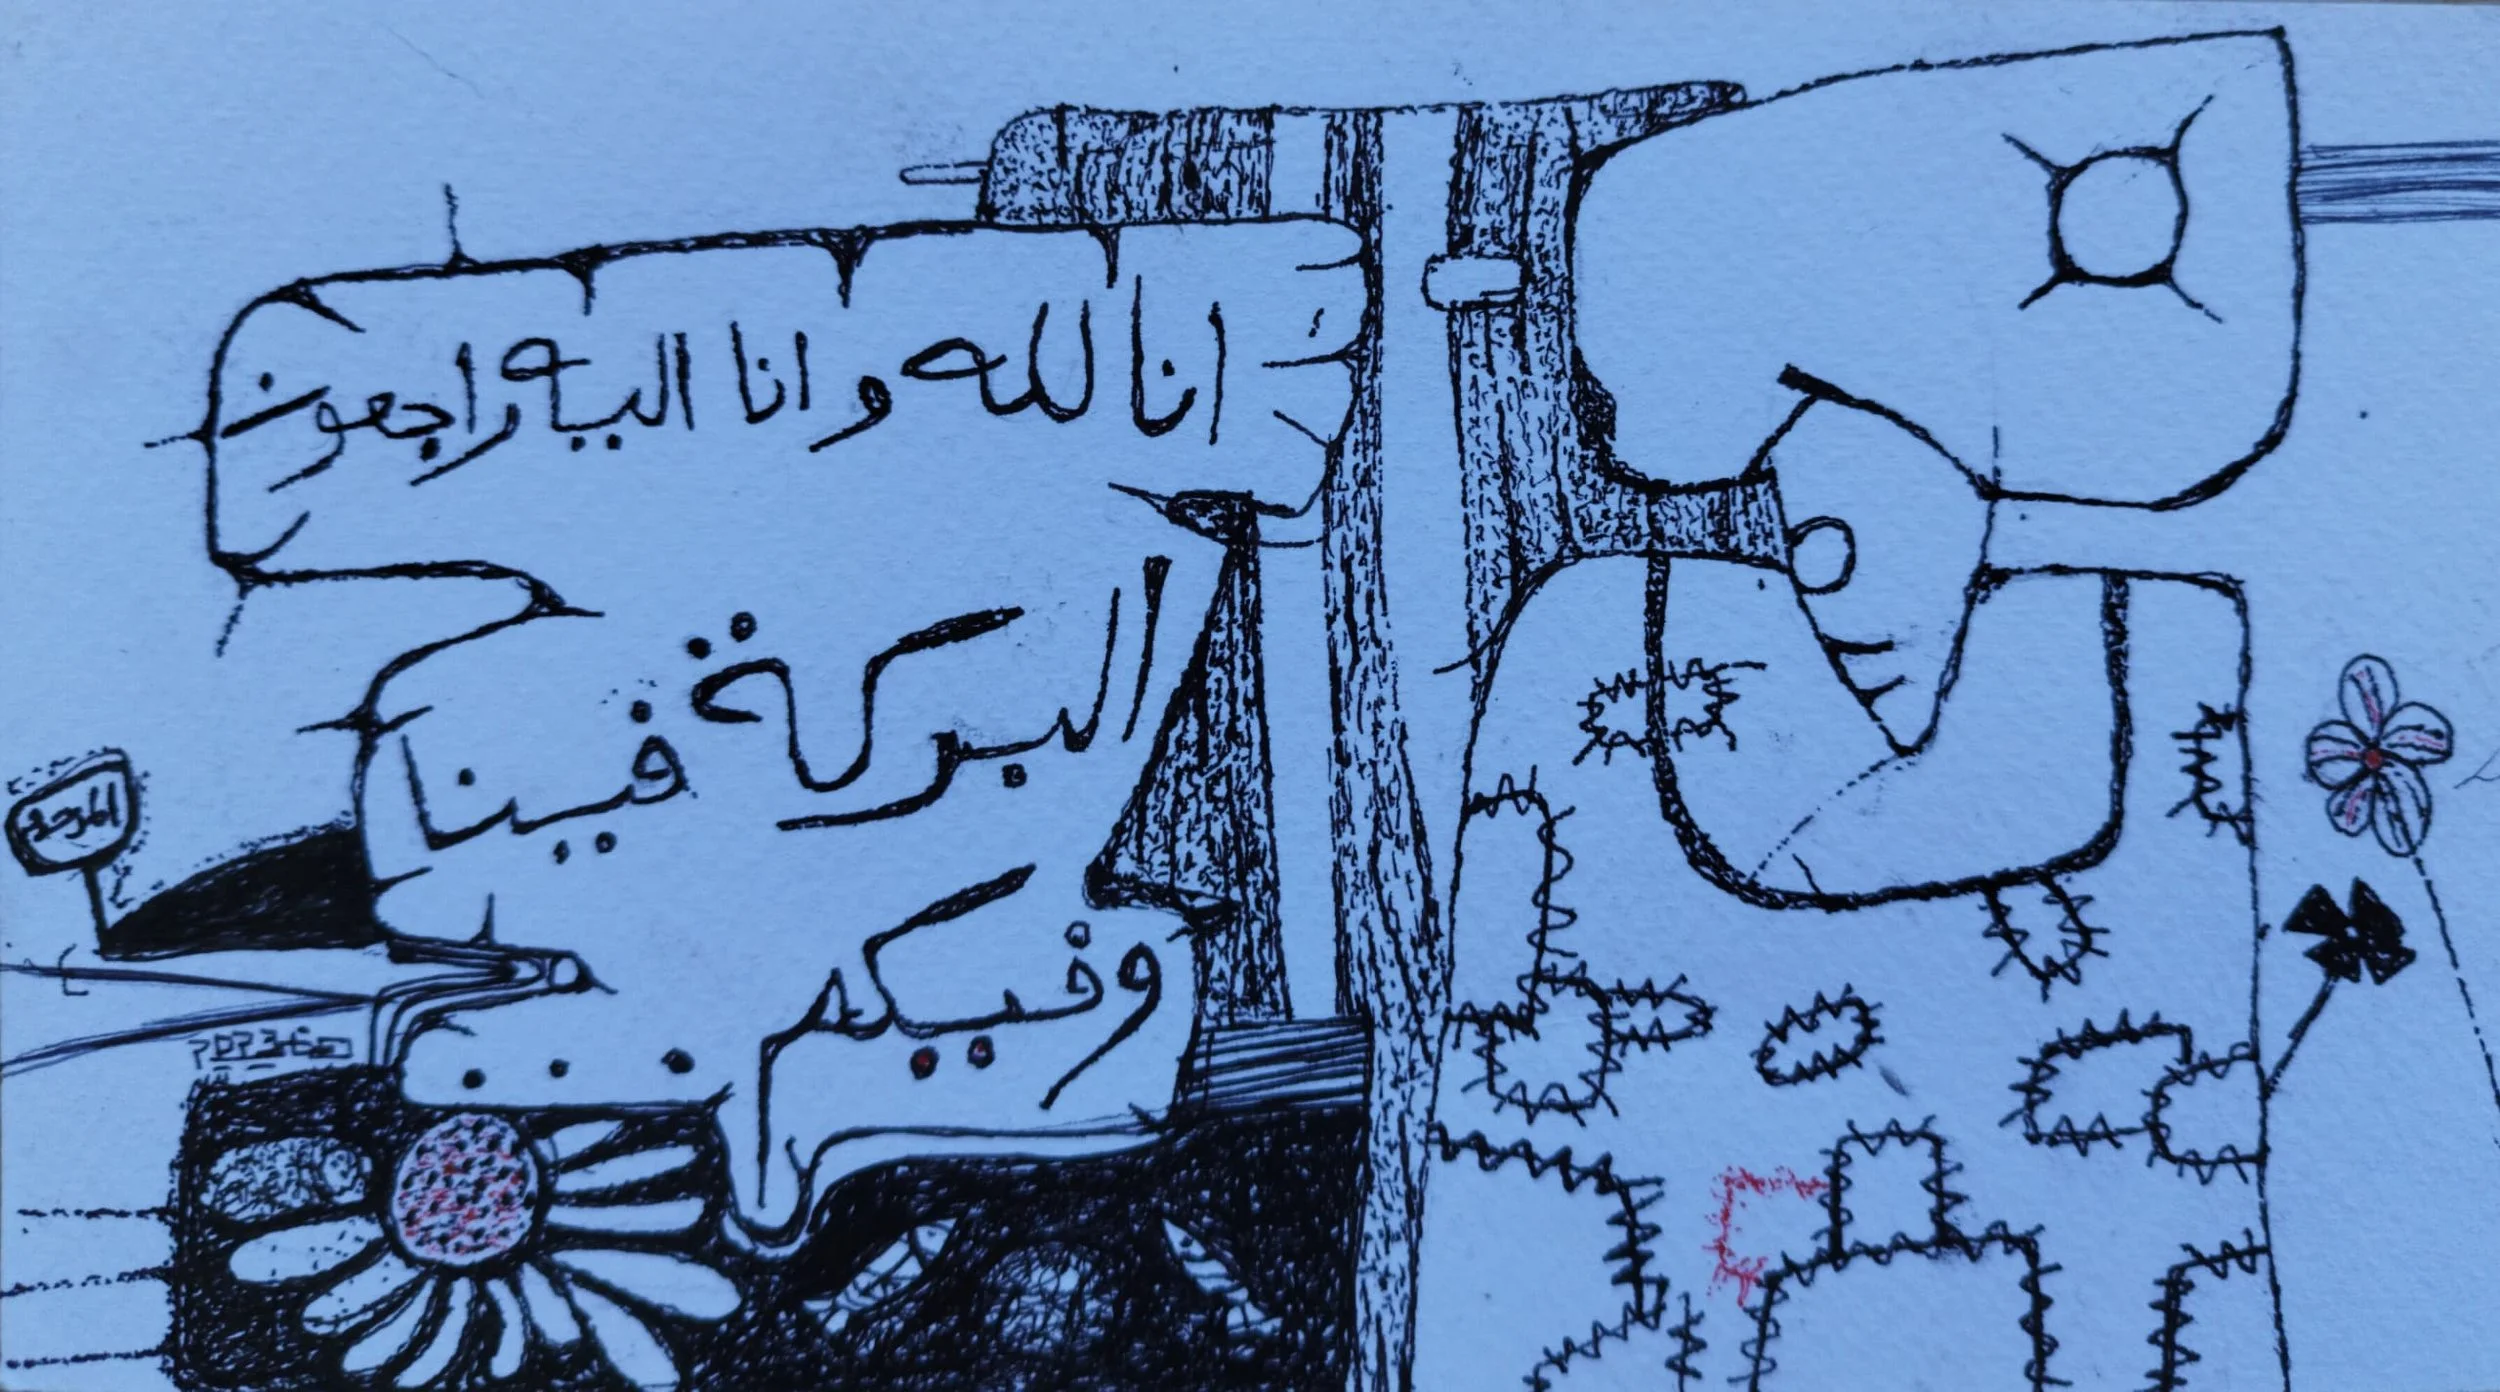 انا لله وانا اليه راجعون
البركة فينا
وفيكم
...